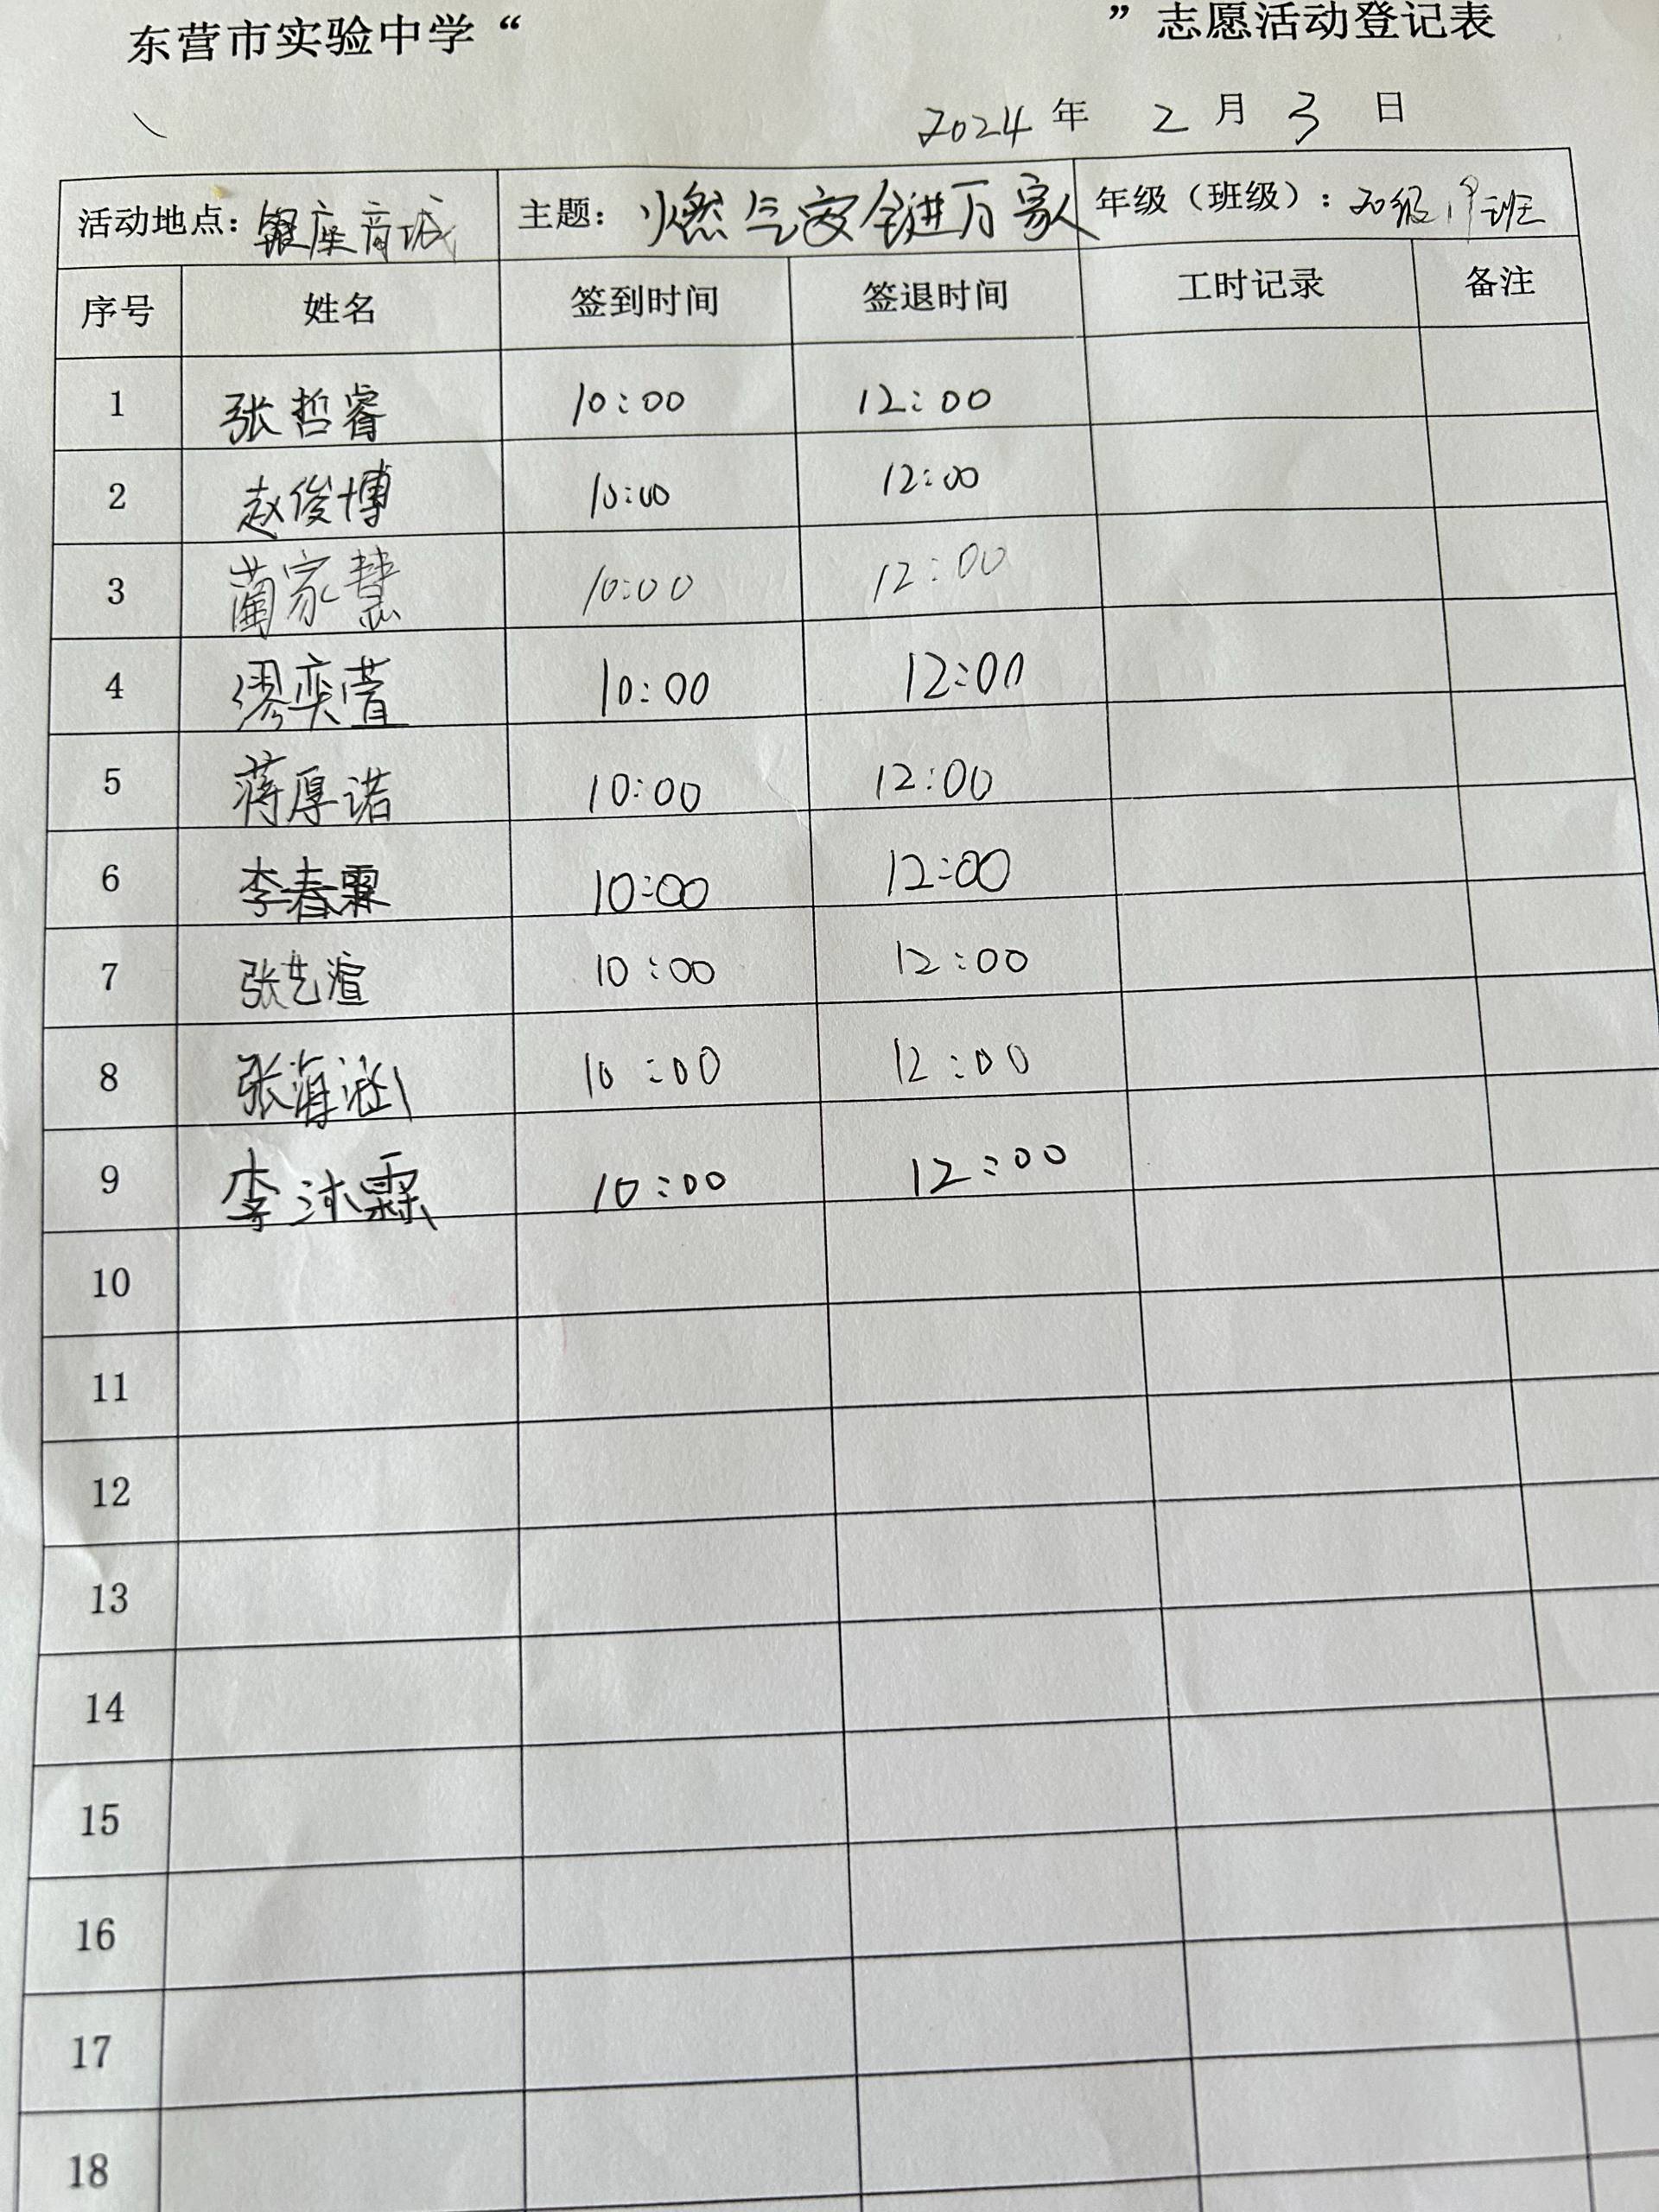 东营市实验中学“ ”志愿活动登记表
2024 年 2 月 3 日
活动地点：银座商城 主题：燃气安全进万家 年级（班级）： 级 班
序号 姓名 签到时间 签退时间 工时记录 备注
1 张哲睿 10:00 12:00
2 赵俊博 10:00 12:00
3 蔺家慧 10:00 12:00
4 缪奕萱 10:00 12:00
5 蒋厚诺 10:00 12:00
6 李春霖 10:00 12:00
7 张艺渲 10:00 12:00
8 张海涵 10:00 12:00
9 李沐霖 10:00 12:00
10
11
12
13
14
15
16
17
18